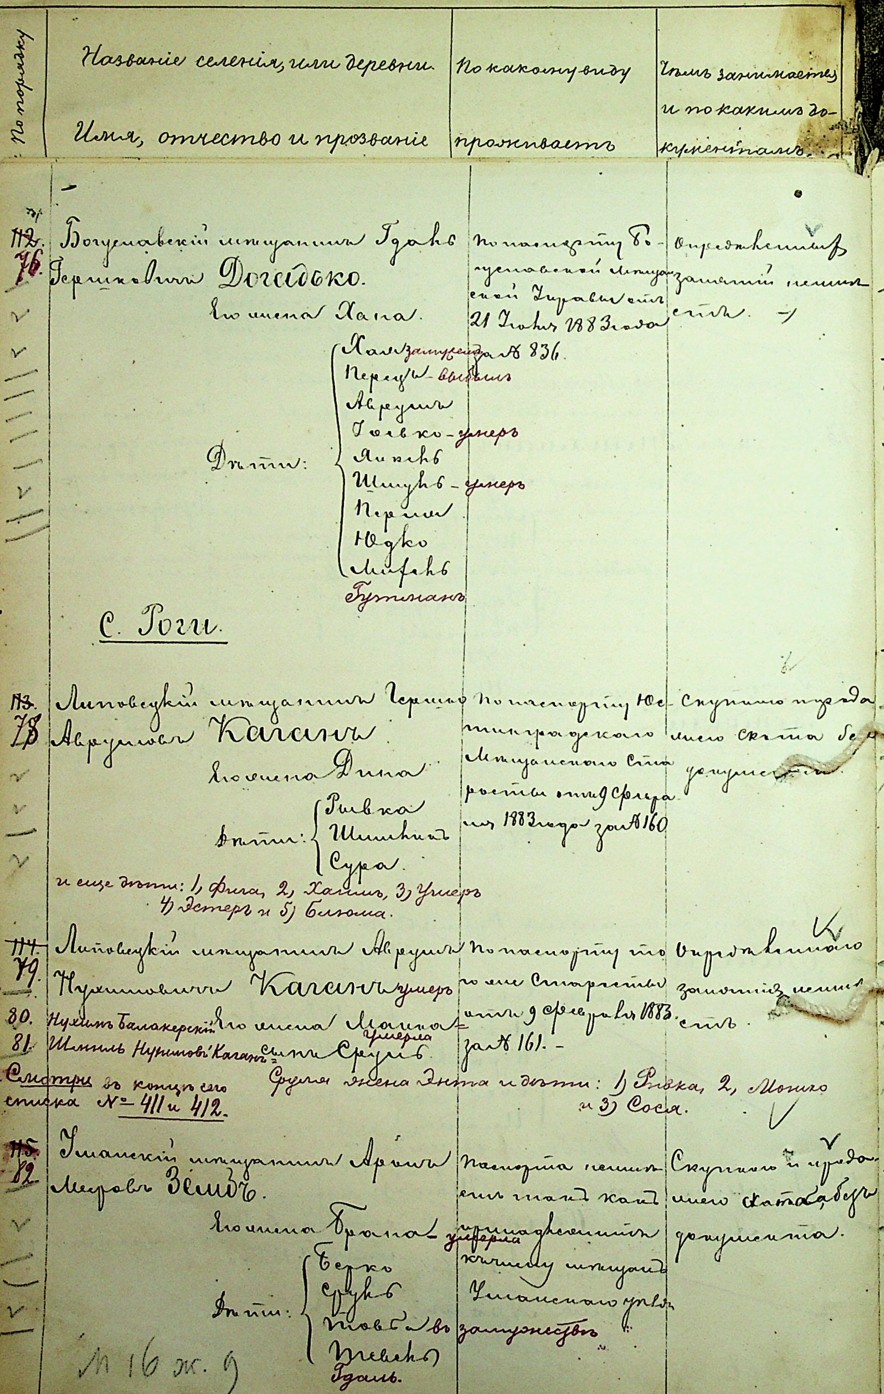 По порядку
Названіе селенія, или деревни.
Имя, отчество и прозваніе
По какому виду
проживаетъ
Чѣмъ занимается
и по какимъ до-
кументамъ.
112.
76.
Богуславскій мѣщанинъ Гдаль
Гершковичъ Догадько.
Его жена Хана.
Дѣти:
Хая замужемъ
Перецъ - выбылъ
Аврумъ
Іосько - умеръ
Янкель
Шмуль - умеръ
Перля
Юдко
Мотель
Гутманъ
По паспорту Бо-
гуславской мѣщан
ской Управы отъ
21 Іюня 1883 года
за № 836.
Опредѣленныхъ
занятій неимѣ-
етъ.
С. Роги.
113.
78
Липовецкій мѣщанинъ Гершко
Аврумовъ Каганъ.
Его жена Дина
Дѣти:
Рывка
Сура.
и еще дѣти: 1) Фига, 2, Хаимъ, 3) Умеръ
4) Эстеръ и 5) Блюма.
По паспорту Юс-
тинградскаго
Мѣщанскаго Ста
росты отъ 9 Февра
ля 1883 года за № 160
Скупкою и прода
жею скота безъ
документа.
114.
79.
Липовецкій мѣщанинъ Аврумъ
Нухимовичъ Каганъ умеръ
80. Нухимъ Балакерскій Его жена Малка
умерла
81 Шмиль Нухимовъ Каганъ сынъ Сруль.
Смотри въ концѣ сего
списка № 411 и 412.
Сруля жена Энта и дѣти: 1) Рывка, 2, Мошко
и 3) Сося.
По паспорту то
го же Старосты
отъ 9 Февраля 1883.
за № 161. -
Опредѣленнаго
занятія неимѣ
етъ.
115.
82
Уманскій мѣщанинъ Аронъ
Меѣровъ Зейдъ.
Его жена Брана - умерла
Дѣти:
Берко
Сруль
Товба въ замужествѣ
Тевель
Гдаль.
Паспорта неимѣ
етъ такъ какъ
принадлежитъ
къ числу мѣщанъ
Уманскаго уѣзда
Скупкою и прода-
жею скота, безъ
документа.
М 16 ж. 9